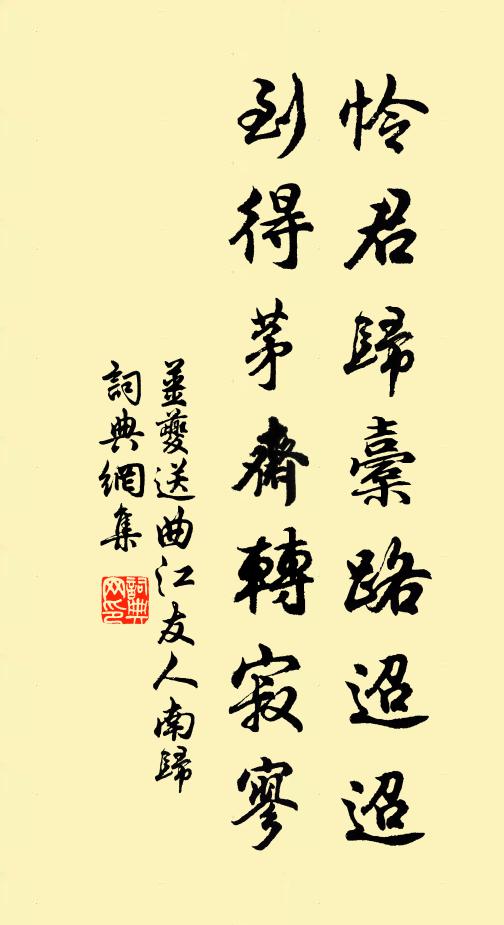 怜君歸橐路迢迢
到得茅齋轉寂寥
薑夔送曲江友人南歸
詞典網集
詞典網印